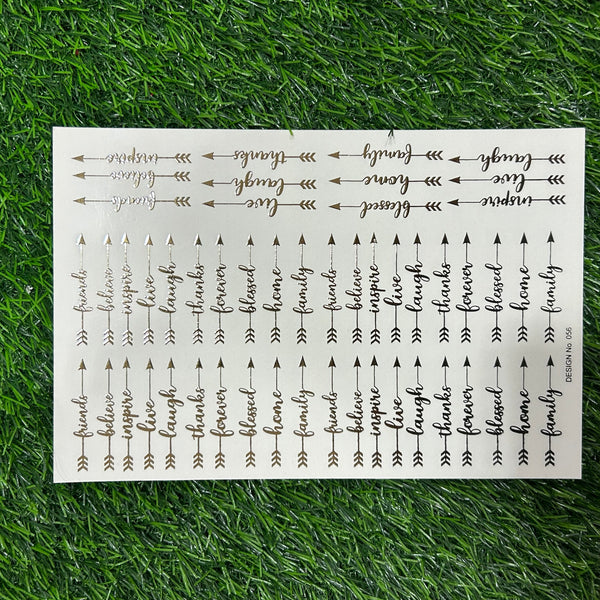 inspire thanks family laugh
believe laugh home live
friends live blessed inspire
friends believe inspire live laugh thanks forever blessed home family friends believe inspire live laugh thanks forever blessed home family
friends believe inspire live laugh thanks forever blessed home family friends believe inspire live laugh thanks forever blessed home family
DESIGN No 056